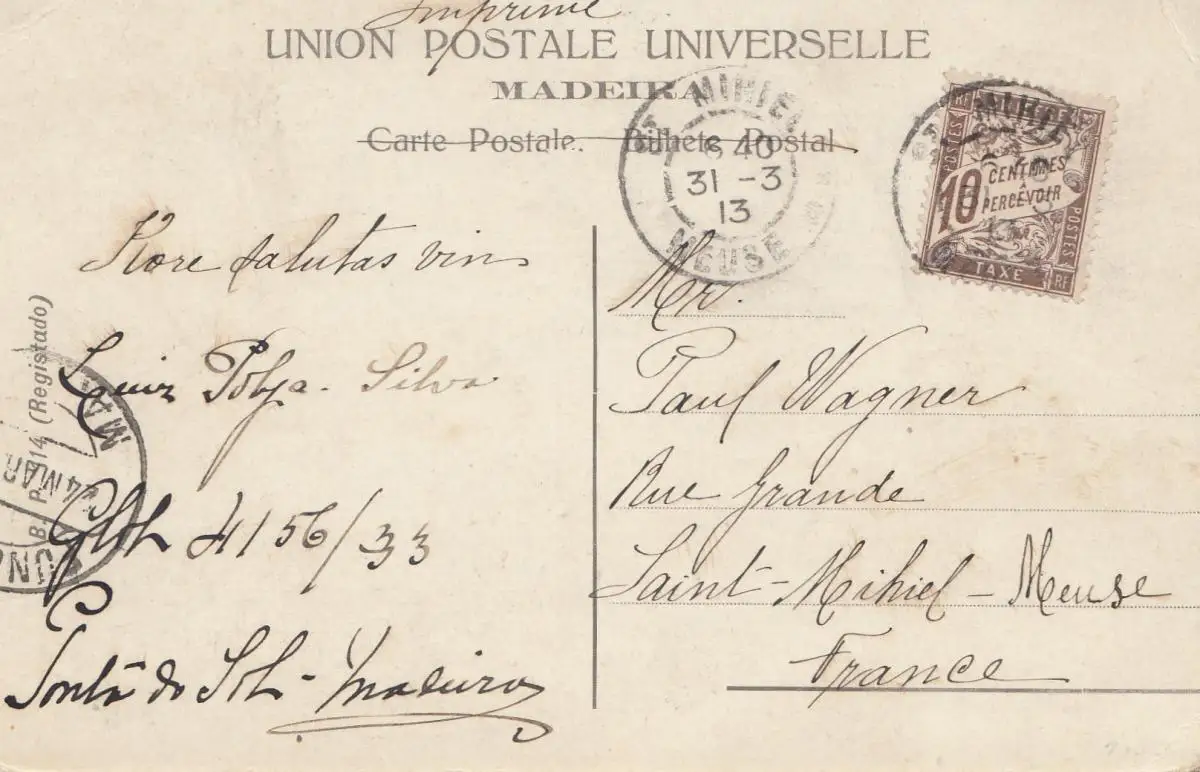 Imprimé
UNION POSTALE UNIVERSELLE
MADEIRA
Carte Postale. Bilhete Postal
ST MIHIEL
6 40
31 - 3
13
MEUSE
ST MIHIEL
RF
POSTES
10 CENTIMES
A
PERCEVOIR
POSTES
TAXE
RF
Kore salutas vin
Luiz Silva
4156/33
Ponta do Sol - Madeira
B. P. 14 (Registado)
4 MAR
Mr.
Paul Wagner
Rue Grande
Saint-Mihiel - Meuse
France